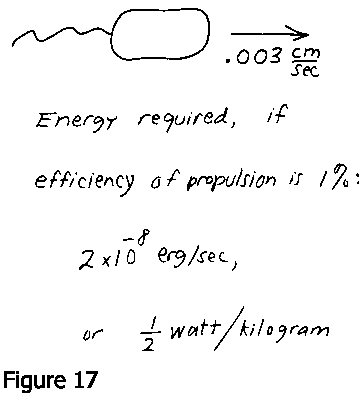 .003 cm/sec
Energy required, if
efficiency of propulsion is 1%:
2 x 10^-8 erg/sec,
or 1/2 watt/kilogram
Figure 17